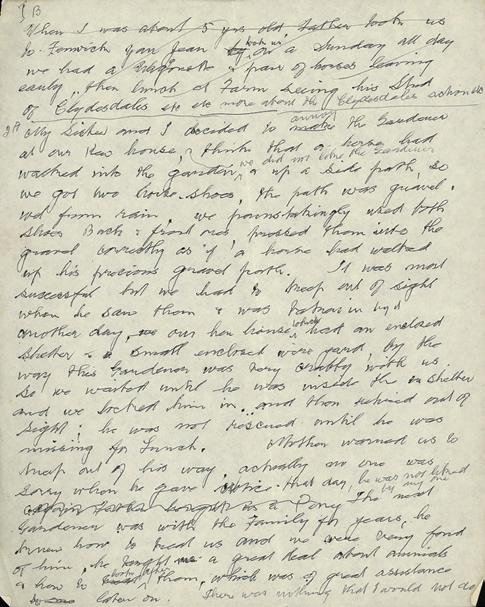 B
When I was about 5 yrs old Father took us
to Fenwick Yan Jean took us on a Sunday all day
we had a Waggonette & pair of horses leaving
early, then lunch at Farm seeing his Stud
of Clydesdales etc etc more about the Clydesdales
My Sister and I decided to annoy the Gardener
at our New house, & think that a horse had
we did not like the Gardener
walked into the garden, & up a side path, so
we got two horse-shoes, the path was gravel
wet from rain, we painstakingly used both
shoes Back & front ones pressed them into the
gravel correctly as if a horse had walked
up his precious gravel path. It was most
successful but we had to keep out of sight
when he saw them & was
another day, our hen house which had an enclosed
shelter & a small enclosed wire yard, by the
way this Gardener was very crabby with us
so we waited until he was inside the shelter
and we locked him in, and then retired out of
sight; he was not rescued until he was
missing for lunch. Mother warned us to
keep out of his way, actually no one was
sorry when he gave notice that day, he was not liked
by any one
The next
Gardener was with the Family for years, he
knew how to treat us and we were very fond
of him, he taught us a great deal about animals
& how to look after them, which was of great assistance
later on. There was nothing that I would not do